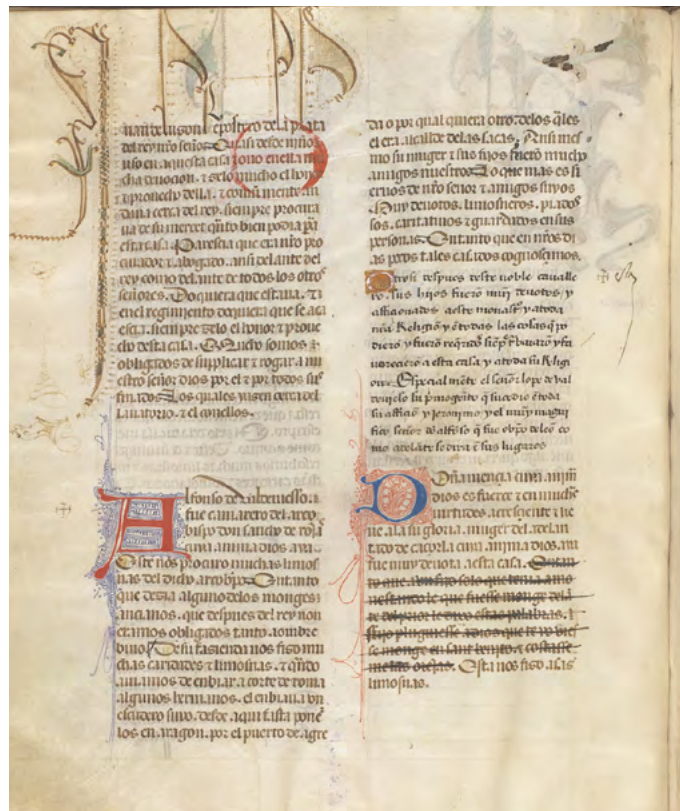 del rey nro señor. Quasi desde niño
uso en aquesta casa. Touo en ella mu
cha deuocion. τ zelo mucho el honor
τ prouecho della. τ comun mente an
daua cerca del rey. siempre procura
ua de su merçet qnto bien podia pa
esta casa. Paresçia que era nro pro
curador τ abogado. ansi delante del
rey como delante de todos los otros
señores. Do quiera que estaua. τ
en el regimiento do quiera que se aca
esçia. siempre zelo el honor τ proue
cho desta casa. Mucho somos
obligados de suplicar τ rogar a nu
estro señor dios por el τ por todos sus
finados. Los quales yazen cerca del
lauatorio. τ el con ellos.
Alfonso de
fue camarero del arço
bispo don sancho de
cuya anima dios aya.
Este nos procuro muchas limos
nas del dicho arçobpo. En tanto
que dezia alguno de los monges
ançianos. que despues del rey non
eramos obligados tanto. a ombre
biuo. De su fasienda nos fiso mu
chas caridades τ limosnas. τ qndo
auiamos de enbiar a corte de roma
algunos hermanos. el enbiaua vn
escudero suyo. desde aqui fasta poner
los en aragon. por el puerto de agre
da o por qual quiera otro. de los qles
el era alcallde de las sacas. Ansi mes
mo su muger τ sus fijos fuero mucho
amigos nuestros. Lo que mas es si
eruos de nro señor τ amigos suyos
Muy deuotos. limosneros. piado
sos. caritatiuos τ guardados en sus
personas. En tanto que en nros di
as pocos tales casados cognosçimos.
Otrosi despues deste noble cavalle
ro. sus hijos fuero muy deuotos. y
afficionados a este monast° y a toda
nra Religio y e todas las cosas q po
diero y fuero reqridos siepr bauaro y fa
uoreciero a esta casa y a toda su Religi
on. Especial mete el señor lope de val
diuielso su pmogeito q sucedio e toda
su afficio y jeronimo y el muy magni
fico señor do alfoso q fue obpo de leo co
mo adelate se dira e sus lugares
Doña mençia cuya anima
dios es fuerte τ en muchas
uirtudes. acresçiente τ lie
ue a la su gloria. muger del adelan
tado de caçorla cuya anima dios aya
fue muy deuota a esta casa. En tan
to que
nestando le que fuesse monge della
te del prior le dixo estas palabras. A
fijo pluguiesse a dios que te yo viesse
se monge en sant benyto. τ costasse
me las orejas. Esta nos fiso asas
limosnas.